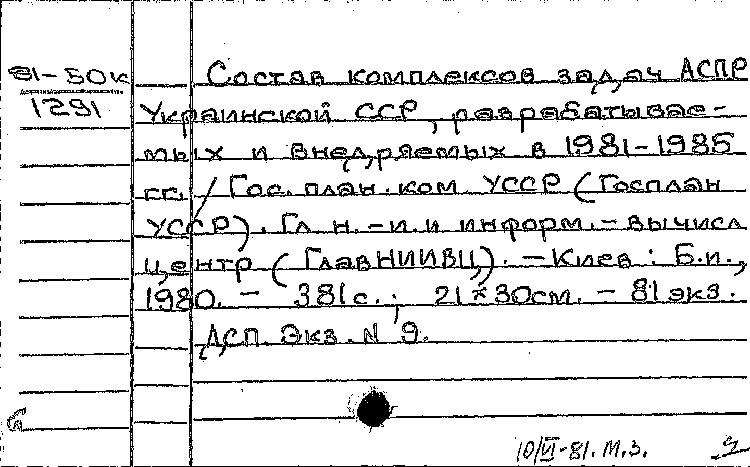 81-50к Состав комплексов задач АСПР
1291 Украинской ССР, разрабатывае-
мых и внедряемых в 1981-1985
гг. / Гос. план. ком УССР (Госплан
УССР). Гл н.-и. и информ.-вычисл
центр (ГлавНИИВЦ). - Киев: Б.и.,
1980. - 381с.; 21*30см. - 81 экз.
ДСП. Экз. N 9.
10/VI-81. М.З.